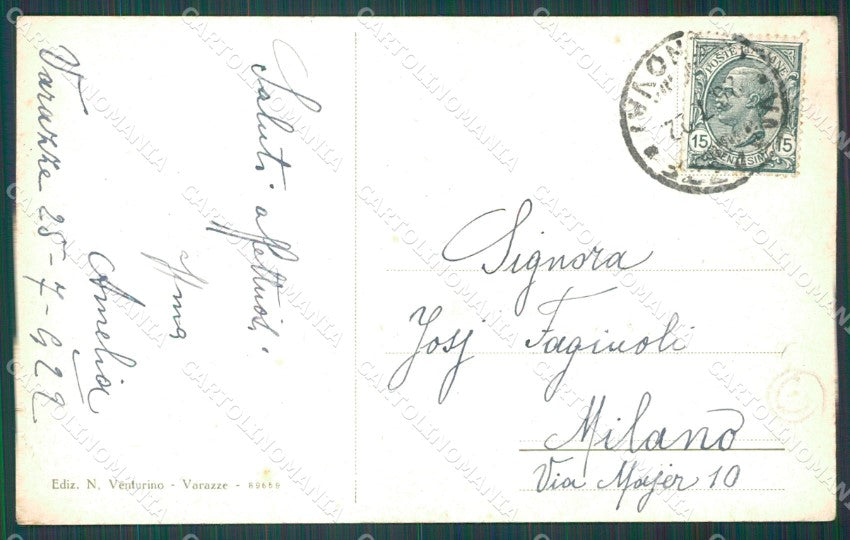 Varazze 25-7-922
Saluti affettuosi
Amelia
Ediz. N. Venturino - Varazze - 89689
POSTE ITALIANE
15 15
CENTESIMI
Signora
Josj Faginoli
Milano
Via Majer 10
CARTOLINOMANIA